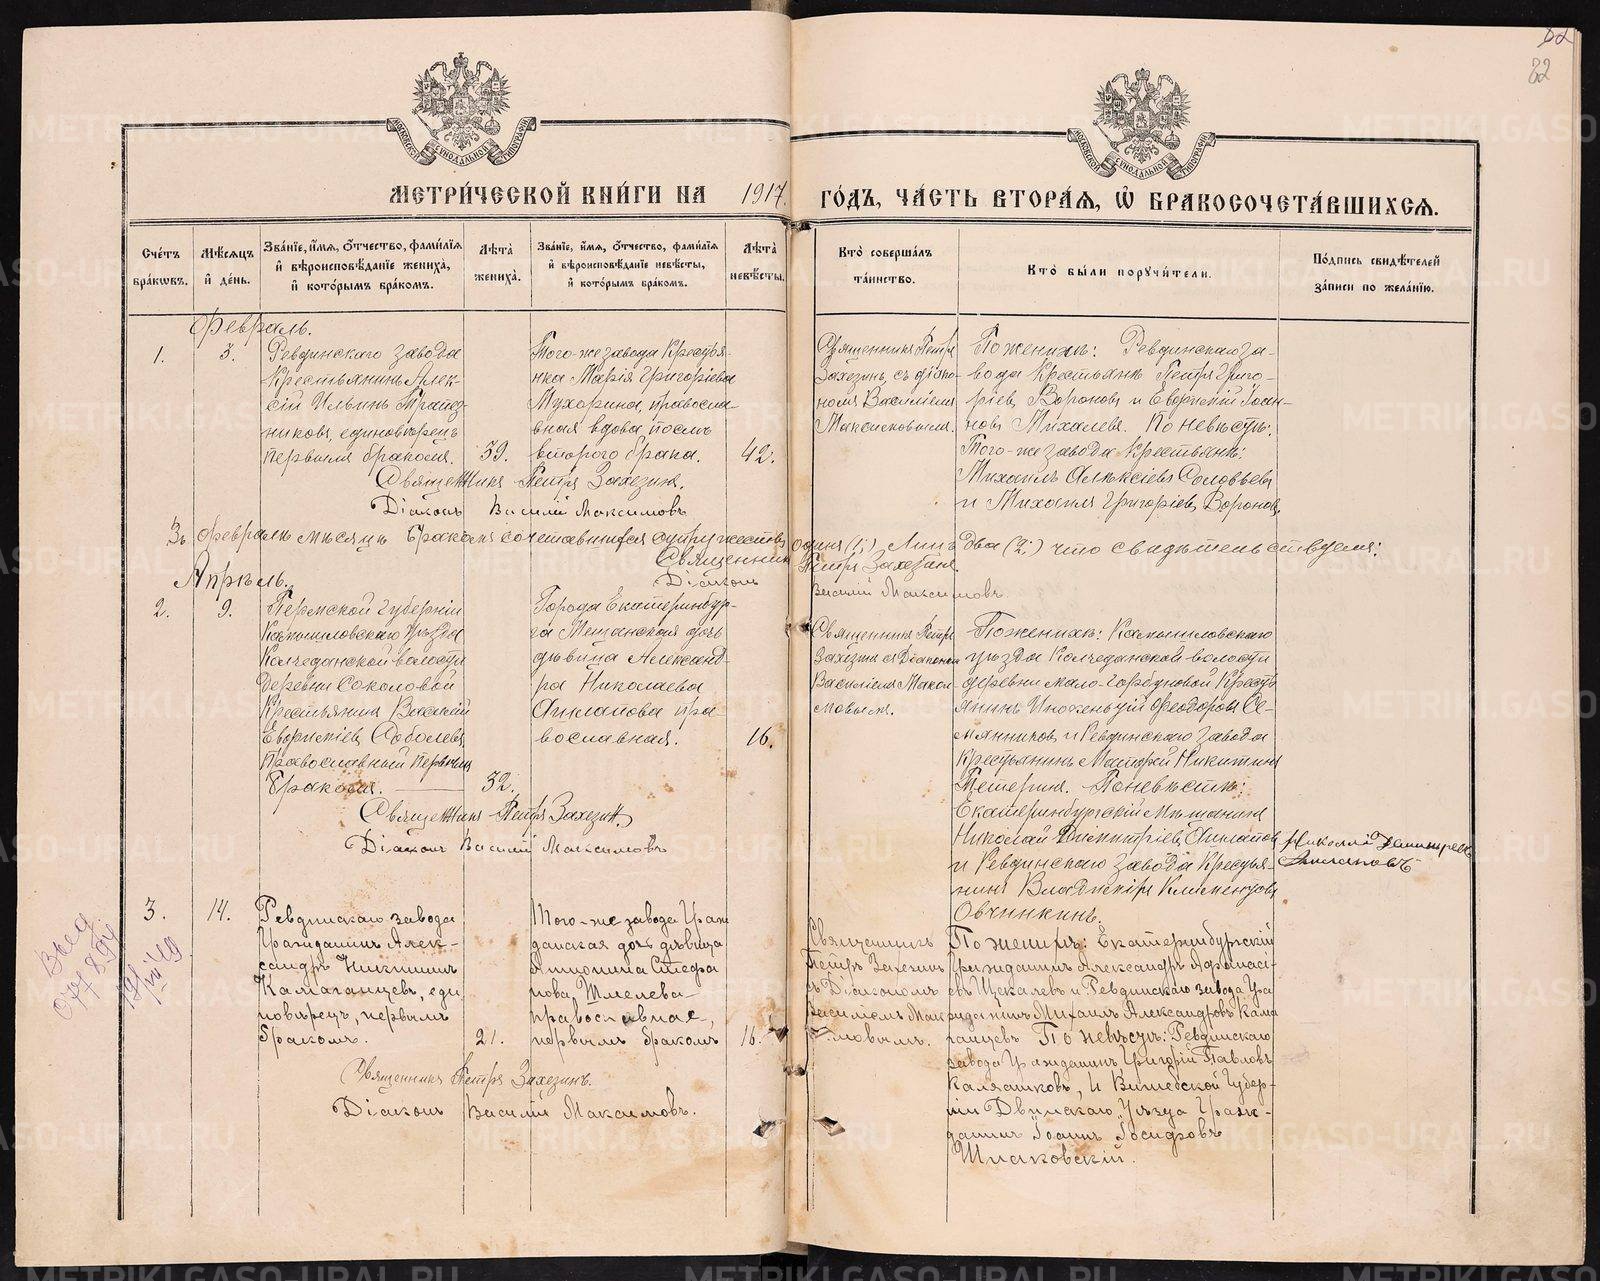 МОСКОВСКОЙ СѴНОДАЛЬНОЙ ТИПОГРАФІИ
МОСКОВСКОЙ СѴНОДАЛЬНОЙ ТИПОГРАФІИ
22
МЕТРИ́ЧЕСКОЙ КНИ́ГИ НА 1917. ГО́ДЪ, ЧА́СТЬ ВТОРА́Я, Ѡ БРАКОСОЧЕТА́ВШИХСЯ.
Сче́тъ бра́кѡвъ.
Мѣ́сяцъ и де́нь.
Зва́нїе, и́мя, о́тчество, фами́лїя и вѣроисповѣ́данїе жениха̀, и кото́рымъ бра́комъ.
Лѣ́та жениха̀.
Зва́нїе, и́мя, о́тчество, фами́лїя и вѣроисповѣ́данїе невѣ́сты, и кото́рымъ бра́комъ.
Лѣ́та невѣ́сты.
Кто̀ соверша́лъ та́инство.
Кто̀ бы́ли поручи́тели.
По́дпись свидѣ́телей за́писи по жела́нїю.
Февраль.
1.
3.
Ревдинскаго завода
Крестьянинъ Алек-
сій Ильинъ
никовъ, единовѣрецъ
первымъ бракомъ.
39.
Того-же завода Крестья-
нка Марія Григоріева
Мухорина, православ-
вная вдова, послѣ
второго брака.
42.
Священникъ Петръ
Захезинъ, съ діако-
номъ Василіемъ
Максимовымъ.
По женихѣ: Ревдинскаго за-
вода Крестьяне Петръ Григо-
ріевъ Вороновъ и Евфимій Іоан-
новъ Михалевъ. По невѣстѣ:
Того-же завода Крестьяне:
Михаилъ Алексіевъ Соловьевъ
и Михаилъ Григоріевъ Вороновъ
Священникъ Петръ Захезинъ.
Діаконъ Василій Максимовъ
Въ Февралѣ мѣсяцѣ бракомъ сочетавшихся супружествъ одинъ (1;) лицъ два (2;) что свидѣтельствуемъ:
Священникъ Петръ Захезинъ.
Діаконъ Василій Максимовъ.
Апрѣль.
2.
9.
Пермской Губерніи
Камышловскаго Уѣзда
Колчеданской волости
Деревни Соколовой
Крестьянинъ Василій
Евфиміевъ Соболевъ
Православный Первымъ
бракомъ.
32.
Города Екатеринбур-
га Мещанская дочь
дѣвица Александ-
ра Николаева
Филатова пра-
вославная.
16.
Священникъ Петръ
Захезинъ съ Діакономъ
Василіемъ Макси-
мовымъ.
По женихѣ: Камышловскаго
уѣзда Колчеданской волости
деревни Мало-Горбуновой Кресть-
янинъ Инокентій Феодоровъ Се-
мянниковъ и Ревдинскаго Завода
Крестьянинъ Матфей Никитинъ
Тетеринъ. По невѣстѣ:
Екатеринбургскій Мѣщанинъ
Николай Димитріевъ Филатовъ
и Ревдинскаго завода Крестья-
нинъ Владиміръ Климентовъ
Овчинкинъ.
Николай Димитріевъ
Филатовъ
Священникъ Петръ Захезинъ
Діаконъ Василій Максимовъ
3.
14.
Ревдинскаго завода
Гражданинъ Алек-
сандръ Никитинъ
Камаганцевъ, еди
новѣрец, первымъ
бракомъ.
21.
Того-же завода Граж
данская дочь дѣвица
Антонина Стефа
нова Шмелева
православная,
первымъ бракомъ
16.
Священникъ
Петръ Захезинъ
съ Діакономъ
Василіемъ Мак
симовымъ.
По женихѣ: Екатеринбургскій
Гражданинъ Александръ Афанасі-
евъ Щекалевъ и Ревдинскаго завода Гра
жданинъ Михаилъ Александровъ Кама
ганцевъ По невѣстѣ: Ревдинскаго
завода Гражданинъ Григорій Павловъ
Калашковъ, и Витебской Губер-
ніи Двинскаго Уѣзда Граж-
данинъ Іоаннъ Іосифовъ
Шпаковскій.
Священникъ Петръ Захезинъ.
Діаконъ Василій Максимовъ.
METRIKI.GASO-URAL.RU